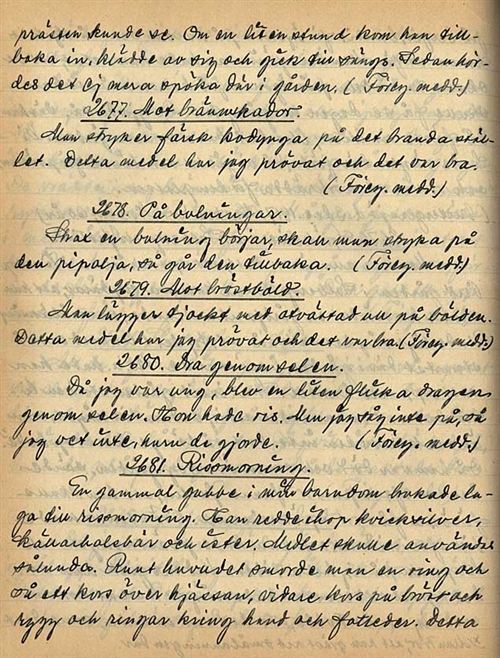 prästen kunde se. Om en liten stund kom han till-
baka in, klädde av sig och gick till sängs. Sedan hör-
des det ej mera spöka där i gården. (Föreg. medd.)
2677. Mot brännskador.
Man stryker färsk kodynga på det brända stäl-
let. Detta medel har jag prövat och det var bra.
(Föreg. medd.)
2678. På bolningar.
Strax en bolning börjar, skall man stryka på
den pipolja, så går den tillbaka. (Föreg. medd.)
2679. Mot bröstböld.
Man lägger tjockt med otvättad ull på bölden.
Detta medel har jag prövat och det var bra. (Föreg. medd.)
2680. Dra genom selen.
Då jag var ung, blev en liten flicka dragen
genom selen. Hon hade ris. Men jag såg inte på, så
jag vet inte, huru de gjorde. (Föreg. medd.)
2681. Rissmörning.
En gammal gubbe i min barndom brukade la-
ga till rissmörning. Han redde ihop kvicksilver,
källarhalsbär och ister. Medlet skulle användas
sålunda. Runt huvudet smorde man en ring och
så ett kors över hjässan, vidare kors på bröst och
rygg och ringar kring hand och fotleder. Detta